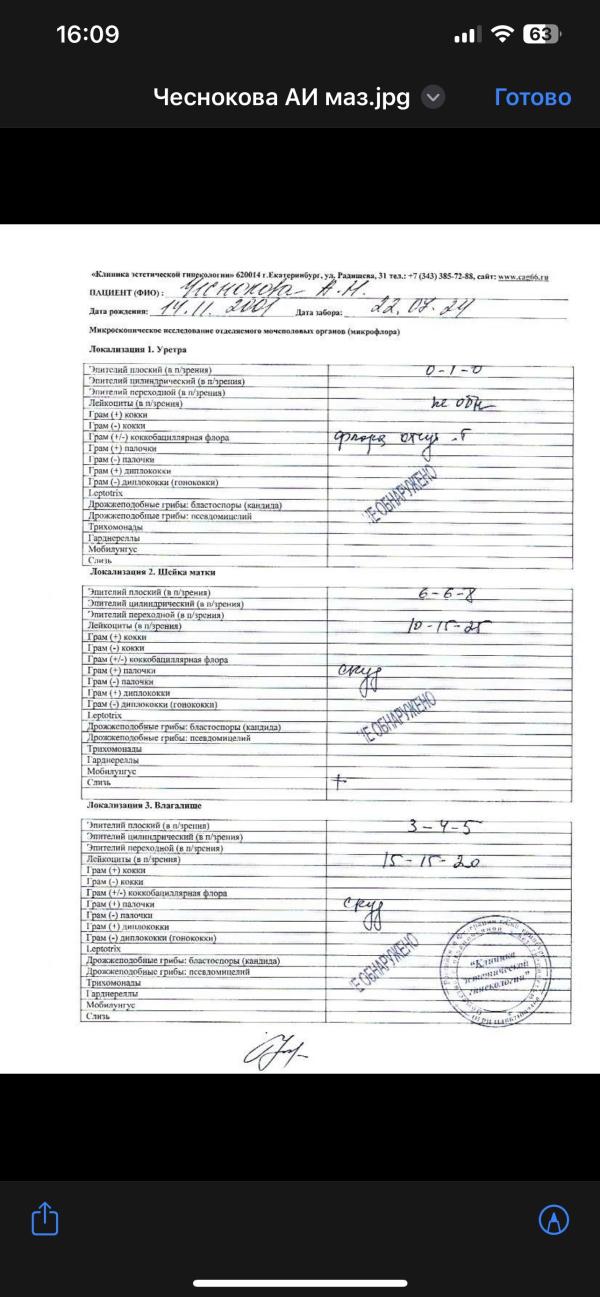 16:09
63
Чеснокова АИ маз.jpg
Готово
«Клиника эстетической гинекологии» 620014 г.Екатеринбург, ул. Радищева, 31 тел.: +7 (343) 385-72-88, сайт: www.cag66.ru
ПАЦИЕНТ (ФИО) : Чеснокова А.И.
Дата рождения: 14.11.2001 Дата забора: 22.07.24
Микроскопическое исследование отделяемого мочеполовых органов (микрофлора)
Локализация 1. Уретра
Эпителий плоский (в п/зрения) 0-1-0
Эпителий цилиндрический (в п/зрения)
Эпителий переходной (в п/зрения)
Лейкоциты (в п/зрения) не обн
Грам (+) кокки
Грам (-) кокки
Грам (+/-) коккобациллярная флора флора отсут-т
Грам (+) палочки
Грам (-) палочки
Грам (+) диплококки
Грам (-) диплококки (гонококки)
Leptotrix
Дрожжеподобные грибы: бластоспоры (кандида) НЕ ОБНАРУЖЕНО
Дрожжеподобные грибы: псевдомицелий
Трихомонады
Гарднереллы
Мобилунгус
Слизь
Локализация 2. Шейка матки
Эпителий плоский (в п/зрения) 6-6-8
Эпителий цилиндрический (в п/зрения)
Эпителий переходной (в п/зрения)
Лейкоциты (в п/зрения) 10-15-25
Грам (+) кокки
Грам (-) кокки
Грам (+/-) коккобациллярная флора
Грам (+) палочки скуд
Грам (-) палочки
Грам (+) диплококки
Грам (-) диплококки (гонококки)
Leptotrix
Дрожжеподобные грибы: бластоспоры (кандида) НЕ ОБНАРУЖЕНО
Дрожжеподобные грибы: псевдомицелий
Трихомонады
Гарднереллы
Мобилунгус
Слизь +
Локализация 3. Влагалище
Эпителий плоский (в п/зрения) 3-4-5
Эпителий цилиндрический (в п/зрения)
Эпителий переходной (в п/зрения)
Лейкоциты (в п/зрения) 15-15-20
Грам (+) кокки
Грам (-) кокки
Грам (+/-) коккобациллярная флора
Грам (+) палочки скуд
Грам (-) палочки
Грам (+) диплококки
Грам (-) диплококки (гонококки)
Leptotrix
Дрожжеподобные грибы: бластоспоры (кандида) НЕ ОБНАРУЖЕНО
Дрожжеподобные грибы: псевдомицелий
Трихомонады
Гарднереллы
Мобилунгус
Слизь
"Клиника
эстетической
гинекологии"